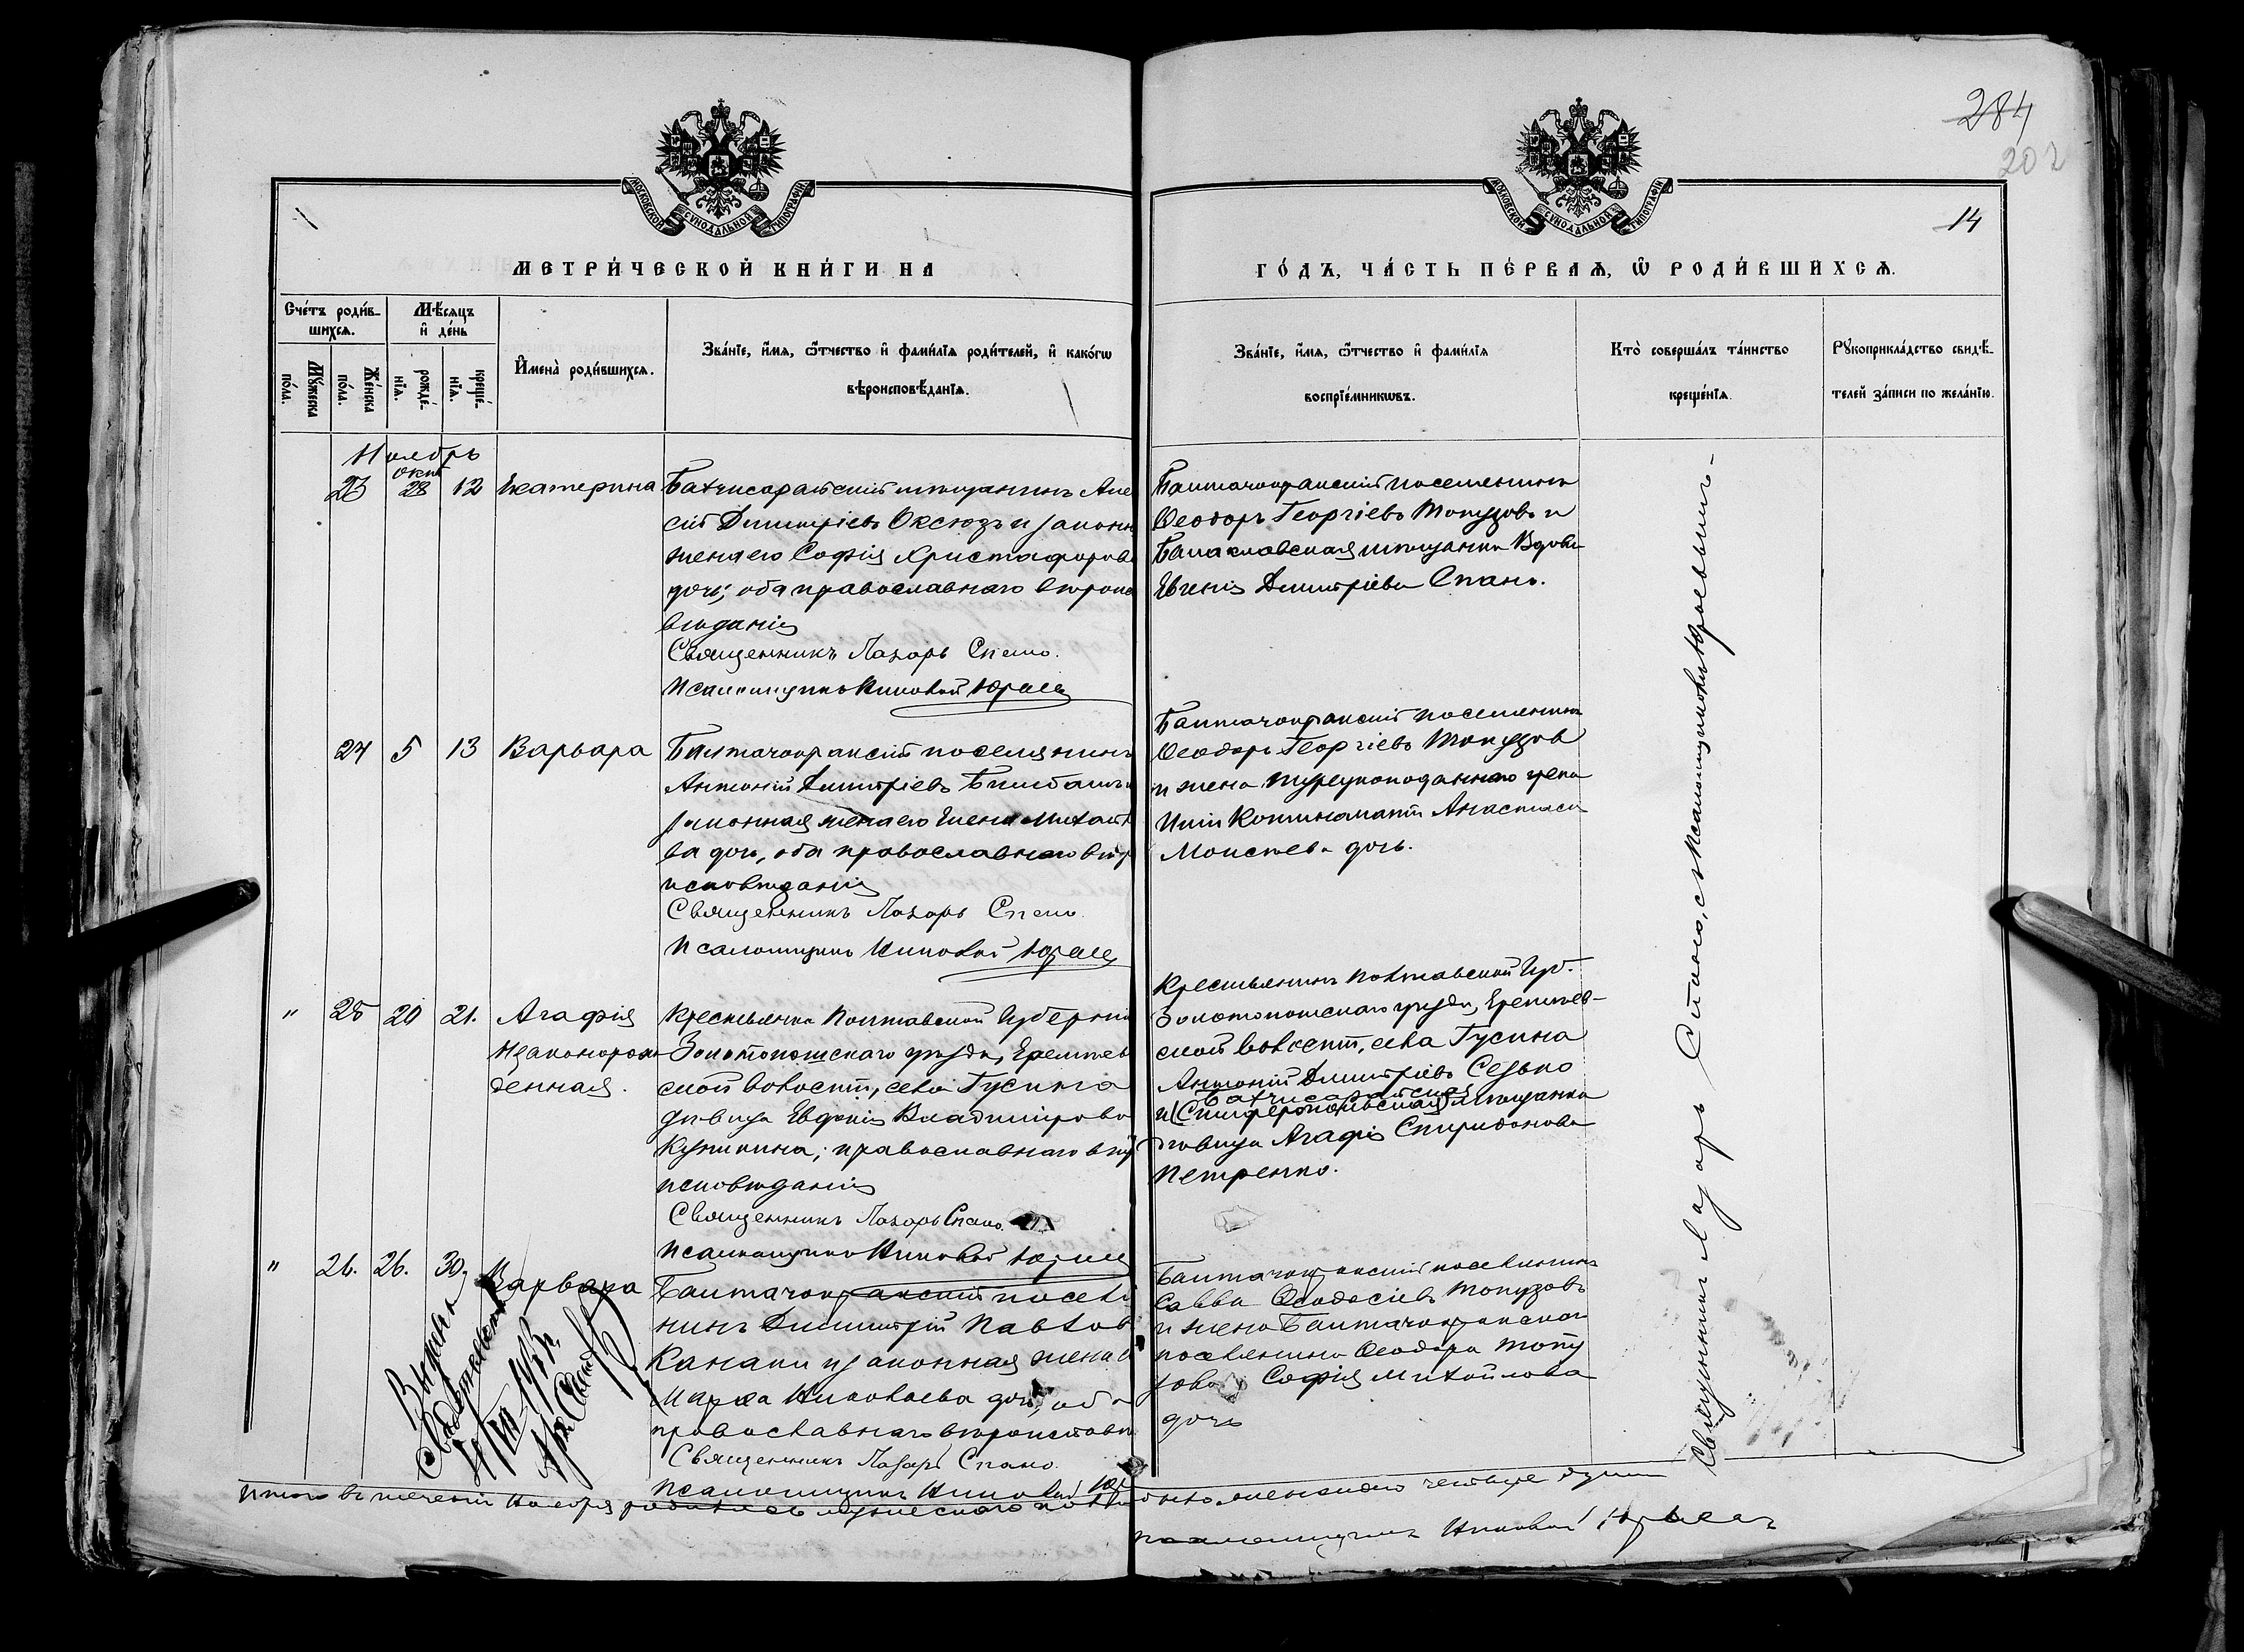 284
202
14
МОСКОВСКОЙ СѴНОДАЛЬНОЙ ТИПОГРАФІИ
МОСКОВСКОЙ СѴНОДАЛЬНОЙ ТИПОГРАФІИ
МЕТРИ́ЧЕСКОЙ КНИ́ГИ НА
ГО́ДЪ, ЧА́СТЬ ПЕ́РВАѦ, Ѡ҆ РОДИ́ВШИХСѦ.
Сче́тъ роди́в-
шихсѧ.
Мѣ́сяцъ
и҆ де́нь
Мꙋ́жеска
по́ла.
Же́нска
по́ла.
рожде́-
нїѧ.
креще́-
нїѧ.
И҆мена̀ роди́вшихсѧ.
Зва́нїе, и҆́мѧ, ѻ҆́тчество и҆ фами́лїѧ роди́телей, и҆ како́гѡ
вѣроисповѣ́данїѧ.
Зва́нїе, и҆́мѧ, ѻ҆́тчество и҆ фами́лїѧ
воспрїе́мникѡвъ.
Кто̀ соверша́лъ та́инство
креще́нїѧ.
Рꙋкоприкла́дство свидѣ́-
телей за́писи по жела́нїю.
Ноябрь
23 окт 28 12 Екатерина
Бахчисарайскій мѣщанинъ
сій Димитріевъ Оксюзъ и законн
жена его Софія Христофорова
дочь; оба православнаго вѣроис
вѣданія
Священникъ Лазарь Спано.
Псаломщикъ Николай Юрьев
Балтачокракскій поселянинъ
Ѳеодоръ Георгіевъ Топузовъ и
Балаклавская мѣщанка Вдова
Евгенія Димитріева Спано.
24 5 13 Варвара
Балтачокракскій поселянинъ
Антоній Димитріевъ
законная жена его Елена Михай
ва дочь, оба православнаго вѣр
исповѣданія
Священникъ Лазарь Спано
Псаломщикъ Николай Юрьев
Балтачокракскій поселянинъ
Ѳеодоръ Георгіевъ Топузов
и жена турецкоподаннаго грека
Анастаси
Моисеева дочь.
" 25 20 21. Агафія
Незаконорож
денная.
Крестьянка Полтавской Губерніи
Золотоношскаго уѣзда, Еремѣев
ской волости, села Гусинга
дѣвица Евдокія Владимірова
православнаго вѣр
исповѣданія
Священникъ Лазарь Спано.
Псаломщикъ Николай Юрьев
Крестьянинъ Полтавской Губ.
Золотоношскаго уѣзда, Еремѣев-
ской волости, села Гусина
Антоній Димитріевъ
Бахчисарайская
и (Симферопольская) мѣщанка
дѣвица Агафія Спиридонова
Петренко.
" 26. 26. 30. Варвара
Балтачокракскій поселя
нинъ Димитрій Павлов
Канаки и законная жена е
Марѳа Николаева дочь, оба
православнаго вѣроисповѣ
Священникъ Лазарь Спано.
Псаломщикъ Николай Юр
Балтачокракскій поселянинъ
Савва Ѳеодосіевъ Топузовъ
и жена Балтачокракскаго
поселянина Ѳеодора Топу
зова Софія Михайлова
дочь
Священникъ Лазарь Спано, съ Псаломщикомъ Юрьевымъ-
Итого въ теченіи Ноября родилось мужескаго пола
женскаго четыре души
псаломщикъ Николай Юрьевъ